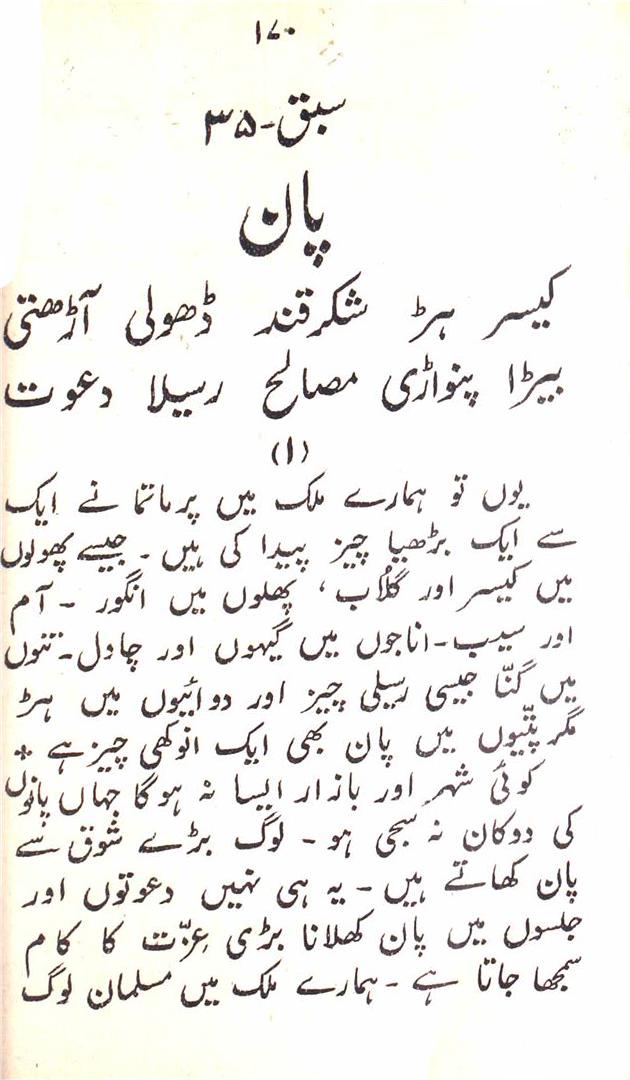 ۱۷۰
سبق-۳۵
پان
کیسر ہڑ شکرقند ڈھولی آڑھتی
بیڑا پنواڑی مصالح رسیلا دعوت
(۱)
یوں تو ہمارے ملک میں پرماتما نے ایک
سے ایک بڑھیا چیز پیدا کی ہیں - جیسے پھولوں
میں کیسر اور گلاب، پھلوں میں انگور - آم
اور سیب - اناجوں میں گیہوں اور چاول - تنوں
میں گنّا جیسی رسیلی چیز اور دوائیوں میں ہڑ
مگر پتّیوں میں پان بھی ایک انوکھی چیز ہے *
کوئی شہر اور بازار ایسا نہ ہوگا جہاں پانوں
کی دوکان نہ سجی ہو - لوگ بڑے شوق سے
پان کھاتے ہیں - یہ ہی نہیں دعوتوں اور
جلسوں میں پان کھلانا بڑی عزّت کا کام
سمجھا جاتا ہے - ہمارے ملک میں مسلمان لوگ